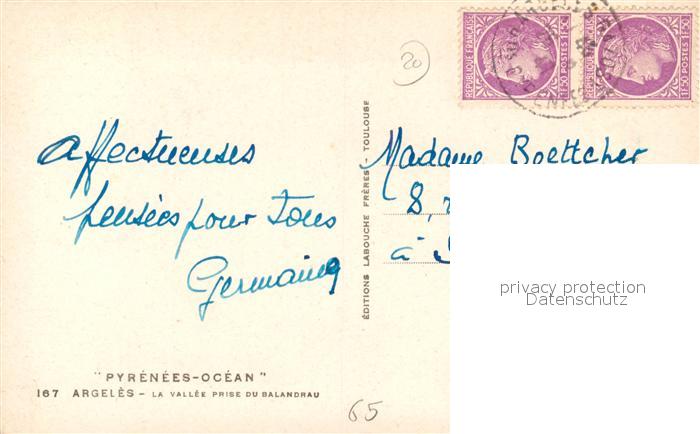 20
RÉPUBLIQUE FRANÇAISE
1F50 POSTES 1F50
RÉPUBLIQUE FRANÇAISE
1F50 POSTES 1F50
affectueuses
pensées pour tous
Germaine
ÉDITIONS LABOUCHE FRÈRES - TOULOUSE
Madame Boettcher
8,
à
privacy protection
Datenschutz
"PYRÉNÉES-OCÉAN"
167 ARGELÈS - LA VALLÉE PRISE DU BALANDRAU
65